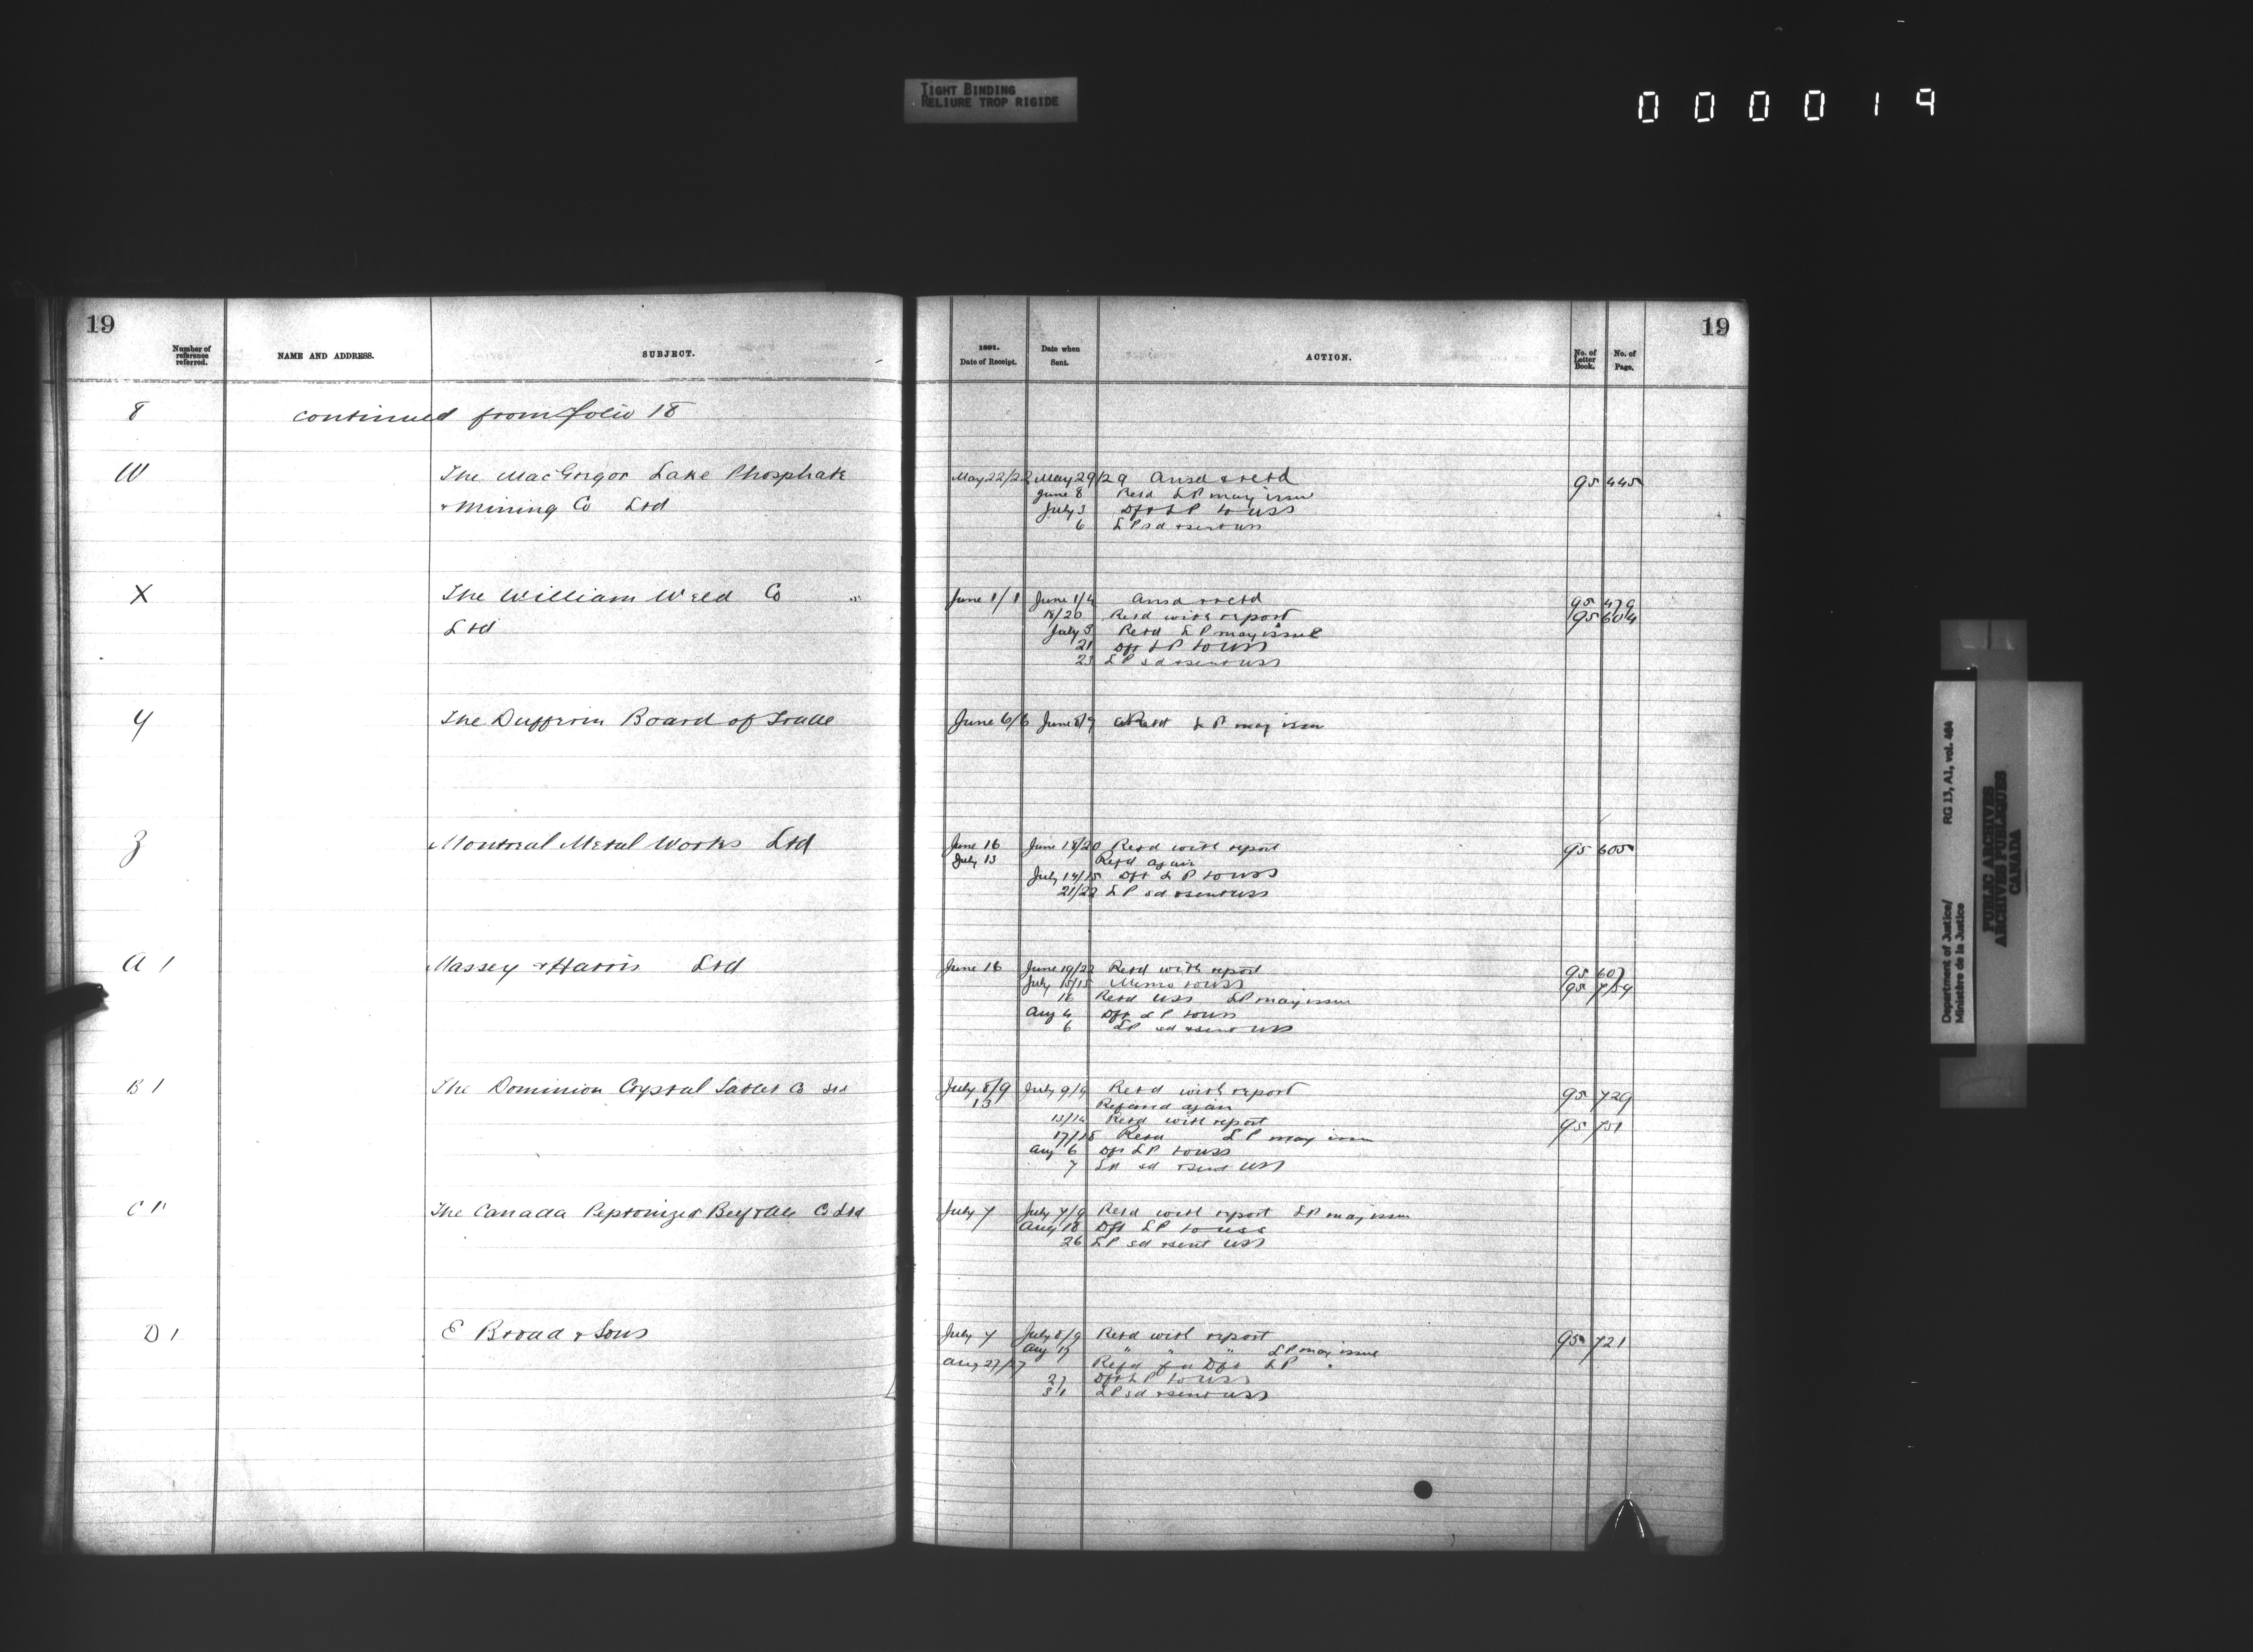 TIGHT BINDING
RELIURE TROP RIGIDE
000019
19
Number of reference referred.
NAME AND ADDRESS.
SUBJECT.
1891.
Date of Receipt.
Date when Sent.
ACTION.
No. of Letter Book.
No. of Page.
19
8 continued from folio 18
W The MacGregor Lake Phosphate May 22/22 May 29/29 Ansd & retd 95 445
& Mining Co Ltd June 8 Retd LP may issue
July 3 Dft LP to USS
6 LP sd & sent USS
X The William Weld Co June 1/1 June 1/4 Ansd & retd 95 479
Ltd 18/20 Retd with report 95 604
July 3 Retd LP may issue
21 Dft LP to USS
23 LP sd & sent USS
Y The Dufferin Board of Trade June 6/6 June 8/9 Retd LP may issue
Z Montreal Metal Works Ltd June 16 June 18/20 Retd with report 95 605
July 13 Refd again
July 14/15 Dft LP to USS
21/22 LP sd & sent USS
A 1 Massey & Harris Ltd June 16 June 19/22 Retd with report 95 607
July 15/15 Memo to USS 95
16 Retd USS LP may issue
Aug 4 Dft LP to USS
6 LP sd & sent USS
B 1 The Dominion Crystal Co Ltd July 8/9 July 9/9 Retd with report 95 729
13 Referred again
13/14 Retd with report 95 751
17/18 Retd LP may issue
Aug 6 Dft LP to USS
7 LP sd & sent USS
C 1 The Canada Peptonized Beef & Ale Co Ltd July 7 July 7/9 Retd with report LP may issue
Aug 18 Dft LP to USS
26 LP sd & sent USS
D 1 E Broad & Sons July 7 July 8/9 Retd with report 95 721
Aug 17 " " " LP may issue
Aug 27/27 Refd for Dft LP
27 Dft LP to USS
31 LP sd & sent USS
Department of Justice/
Ministère de la Justice
RG 13, A1, vol. 484
PUBLIC ARCHIVES
ARCHIVES PUBLIQUES
CANADA